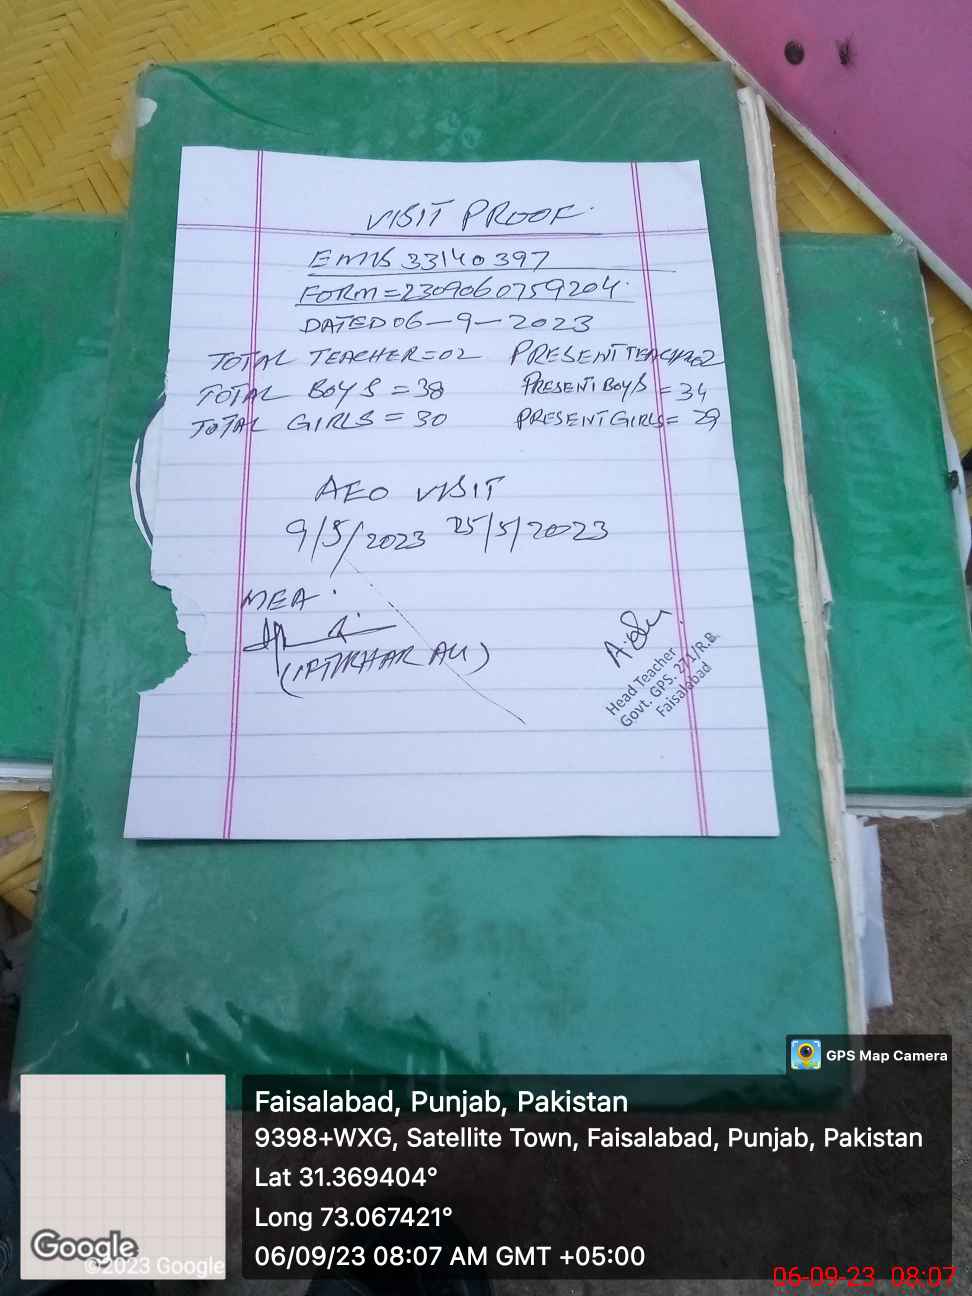 VISIT PROOF.
EMIS 33140397
FORM=2309060759204.
DATED 06-9-2023
TOTAL TEACHER=02 PRESENT TEACHER=02
TOTAL BOYS=38 PRESENT BOYS=34
TOTAL GIRLS=30 PRESENT GIRLS=29
AEO VISIT
9/5/2023 25/5/2023
MEA.
(IFTIKHAR ALI)
Head Teacher
Govt. GPS. 271/R.B.
Faisalabad
GPS Map Camera
Faisalabad, Punjab, Pakistan
9398+WXG, Satellite Town, Faisalabad, Punjab, Pakistan
Lat 31.369404°
Long 73.067421°
06/09/23 08:07 AM GMT +05:00
Google
©2023 Google
06-09-23 08:07